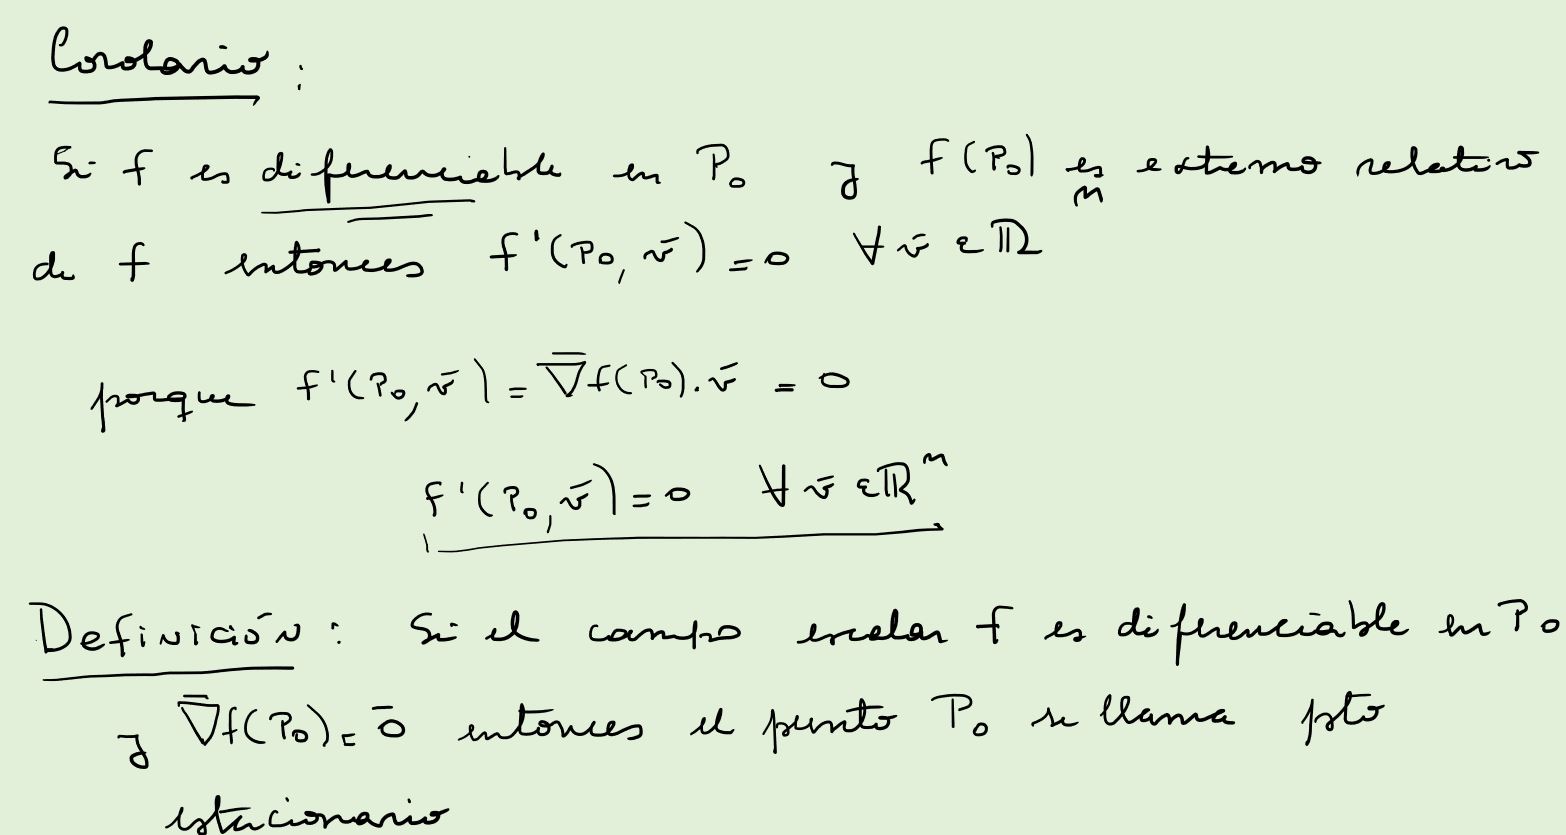 Corolario :
Si f es diferenciable en P₀ y f(P₀) es extremo relativo
de f entonces f'(P₀, v̄) = 0 ∀ v̄ ∈ ℝⁿ
porque f'(P₀, v̄) = ∇̄f(P₀). v̄ = 0
f'(P₀, v̄) = 0 ∀ v̄ ∈ ℝⁿ
Definición : Si el campo escalar f es diferenciable en P₀
y ∇̄f(P₀) = 0̄ entonces el punto P₀ se llama pto
estacionario